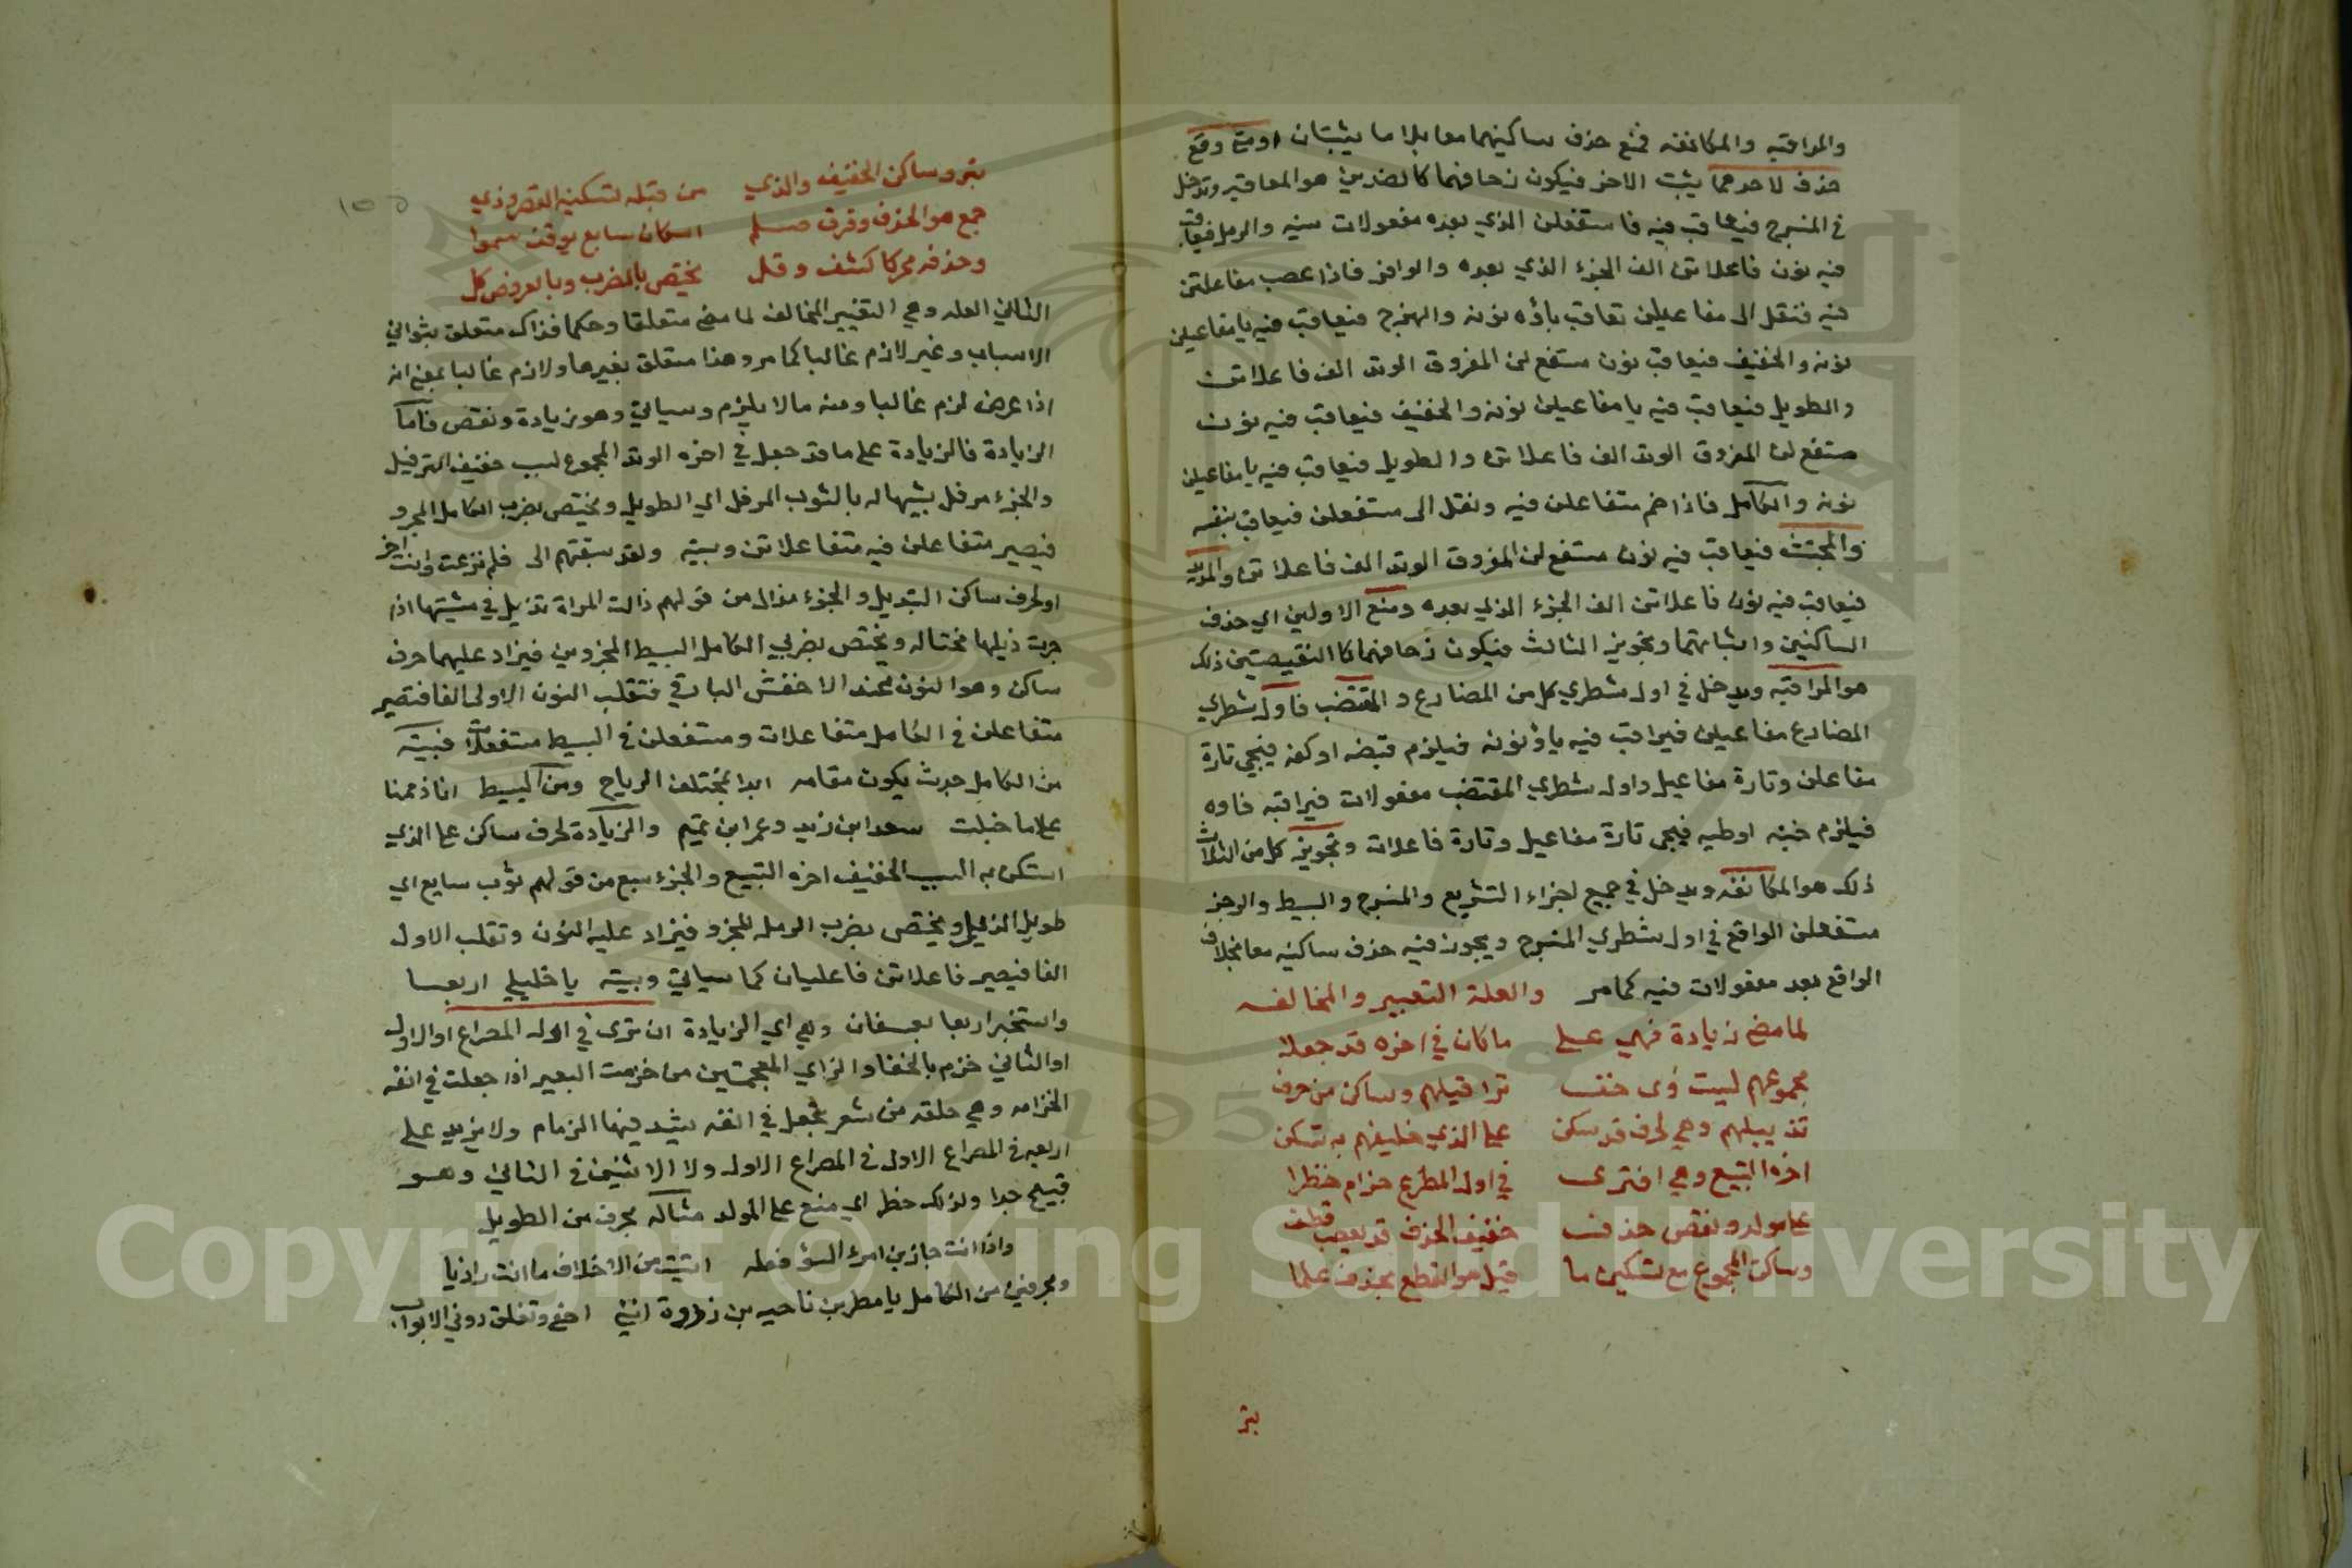 والمراقبه والمكانفه فمنع حذف ساكنيهما معا بلا ما يثبتان اومتى وقع
حذف لاحدهما يثبت الاخر فيكون زحافهما كالضدين هو المعاقبه وتدخل
في المنسرح فيعاقب فيه فا مستفعلن الذي بعده مفعولات سينه والرمل فيعاقب
فيه نون فاعلاتن الف الجزء الذي بعده والوافر فاذا عصب مفاعلتن
فيه فنقل الى مفاعيلن تعاقب ياؤه نونه والهزج فيعاقب فيه يا مفاعيلن
نونه والخفيف فيعاقب نون مستفع لن المفروق الوتد الف فاعلاتن
والطويل فيعاقب فيه يا مفاعيلن نونه والخفيف فيعاقب فيه نون
مستفع لن المفروق الوتد الف فاعلاتن والطويل فيعاقب فيه يا مفاعيلن
نونه والكامل فاذا ضم متفاعلن فيه ونقل الى مستفعلن فيعاقب بنفسه
والمجتث فيعاقب فيه نون مستفع لن المفروق الوتد الف فاعلاتن والمديد
فيعاقب فيه نون فاعلاتن الف الجزء الذي بعده ومنع الاولين اي حذف
الساكنين واثباتهما وتجويز الثالث فيكون زحافهما كالنقيضين ذلك
هو المراقبه ويدخل في اول شطري كل من المضارع والمقتضب فاول شطري
المضارع مفاعيلن فيراقب فيه ياؤ نونه فيلزم قبضه او كفه فيجي تارة
مفاعلن وتارة مفاعيل واول شطري المقتضب مفعولات فيراقبه فاوه
فيلزم خبنه اوطيه فيجي تارة مفاعيل وتارة فاعلات وتجويز كل من الثلاث
ذلك هو المكانفه ويدخل في جميع اجزاء السريع والمنسرح والبسيط والرجز
مستفعلن الواقع في اول شطري المنسرح ويجوز فيه حذف ساكنيه معا بخلاف
الواقع بعد مفعولات فيه كمامر والعلة التغيير والمخالفه
لما مضى زيادة فهي على ماكان في اخره قد جعلا
مجموعهم لسبب ذي خف ترفيلهم وساكن من حرف
تذييلهم وهي لحرف قد سكن على الذي خفيفهم به تسكن
اخره التسبيغ وهي اذ ترى في اول المصراع خزام حظرا
على مولد ونقص حذف خفيف الحذف قد بعصب قطف
وساكن المجموع مع تسكين ما قبل هو القطع بحذف علما
بتر
١٥٥
بتر وساكن الخفيف والذي من قبله تسكينه القصر وذي
جمع هو الحذف وفرق صلم اسكان سابع بوقف سموا
وحذفه محركا كشف وقل يختص بالضرب وبالعروض كل
الثاني العله وهي التغيير المخالف لما مضى متعلقا وحكما فذاك متعلق بثواني
الاسباب وغير لازم غالبا كما مر وهذا متعلق بغيرها ولازم غالبا بمعنى انه
اذا عرض لزم غالبا ومنه مالا يلزم وسياتي وهو زيادة ونقص فاما
الزيادة فالزيادة على ما قد جعل في اخره الوتد المجموع لسبب خفيف الترفيل
والجزء مرفل تشبيها له بالثوب المرفل اي الطويل ويختص بضرب الكامل المجزو
فيصير متفاعلن فيه متفاعلاتن وبيته ولقد سبقتهم الى فلم نزعت وانت اخر
او لحرف ساكن التذييل والجزء مذال من قولهم ذالت المراة تذيل في مشيتها اذا
جرت ذيلها مختاله ويختص بضربي الكامل البسيط المجزوين فيزاد عليهما حرف
ساكن وهو النون عند الاخفش الباقي فتقلب النون الاولى الفا فتصير
متفاعلن في الكامل متفاعلات ومستفعلن في البسيط مستفعلات فبيته
من الكامل جدث يكون مقامه ابدا بمختلف الرياح ومن البسيط انا ذممنا
على ما خيلت سعد ابن زيد وعمر ابن تميم والزيادة لحرف ساكن على الذي
استكن به السبب الخفيف اخره التسبيغ والجزء سبغ من قولهم ثوب سابغ اي
طويل الذيل ويختص بضرب الرمل المجزو فيزاد عليه النون وتقلب الاول
الفا فيصير فاعلاتن فاعليان كما سياتي وبيته يا خليلي اربعا
واستخبرا ربعا بعسفان وهي اي الزيادة ان ترى في اوله المصراع او الاول
او الثاني خزم بالخفا والزاي المعجمتين من خزمت البعير اذا جعلت في انفه
الخزامه وهي حلقه من شعر تجعل في انفه يشد فيها الزمام ولا يزيد على
اربعه في المصراع الاول في المصراع الاول ولا الاثنين في الثاني وهو
قبيح جدا ولذلك حظر اي منع على المولد مثاله بحرف من الطويل
واذا انت جازين امرء السؤ فعله اتيت من الاخلاف ما انت راذيا
وبحرفين من الكامل يا مطر بن ناحيه بن ذروة انني اجفى وتغلق دوني الابواب
Copyright © King Saud University
1957